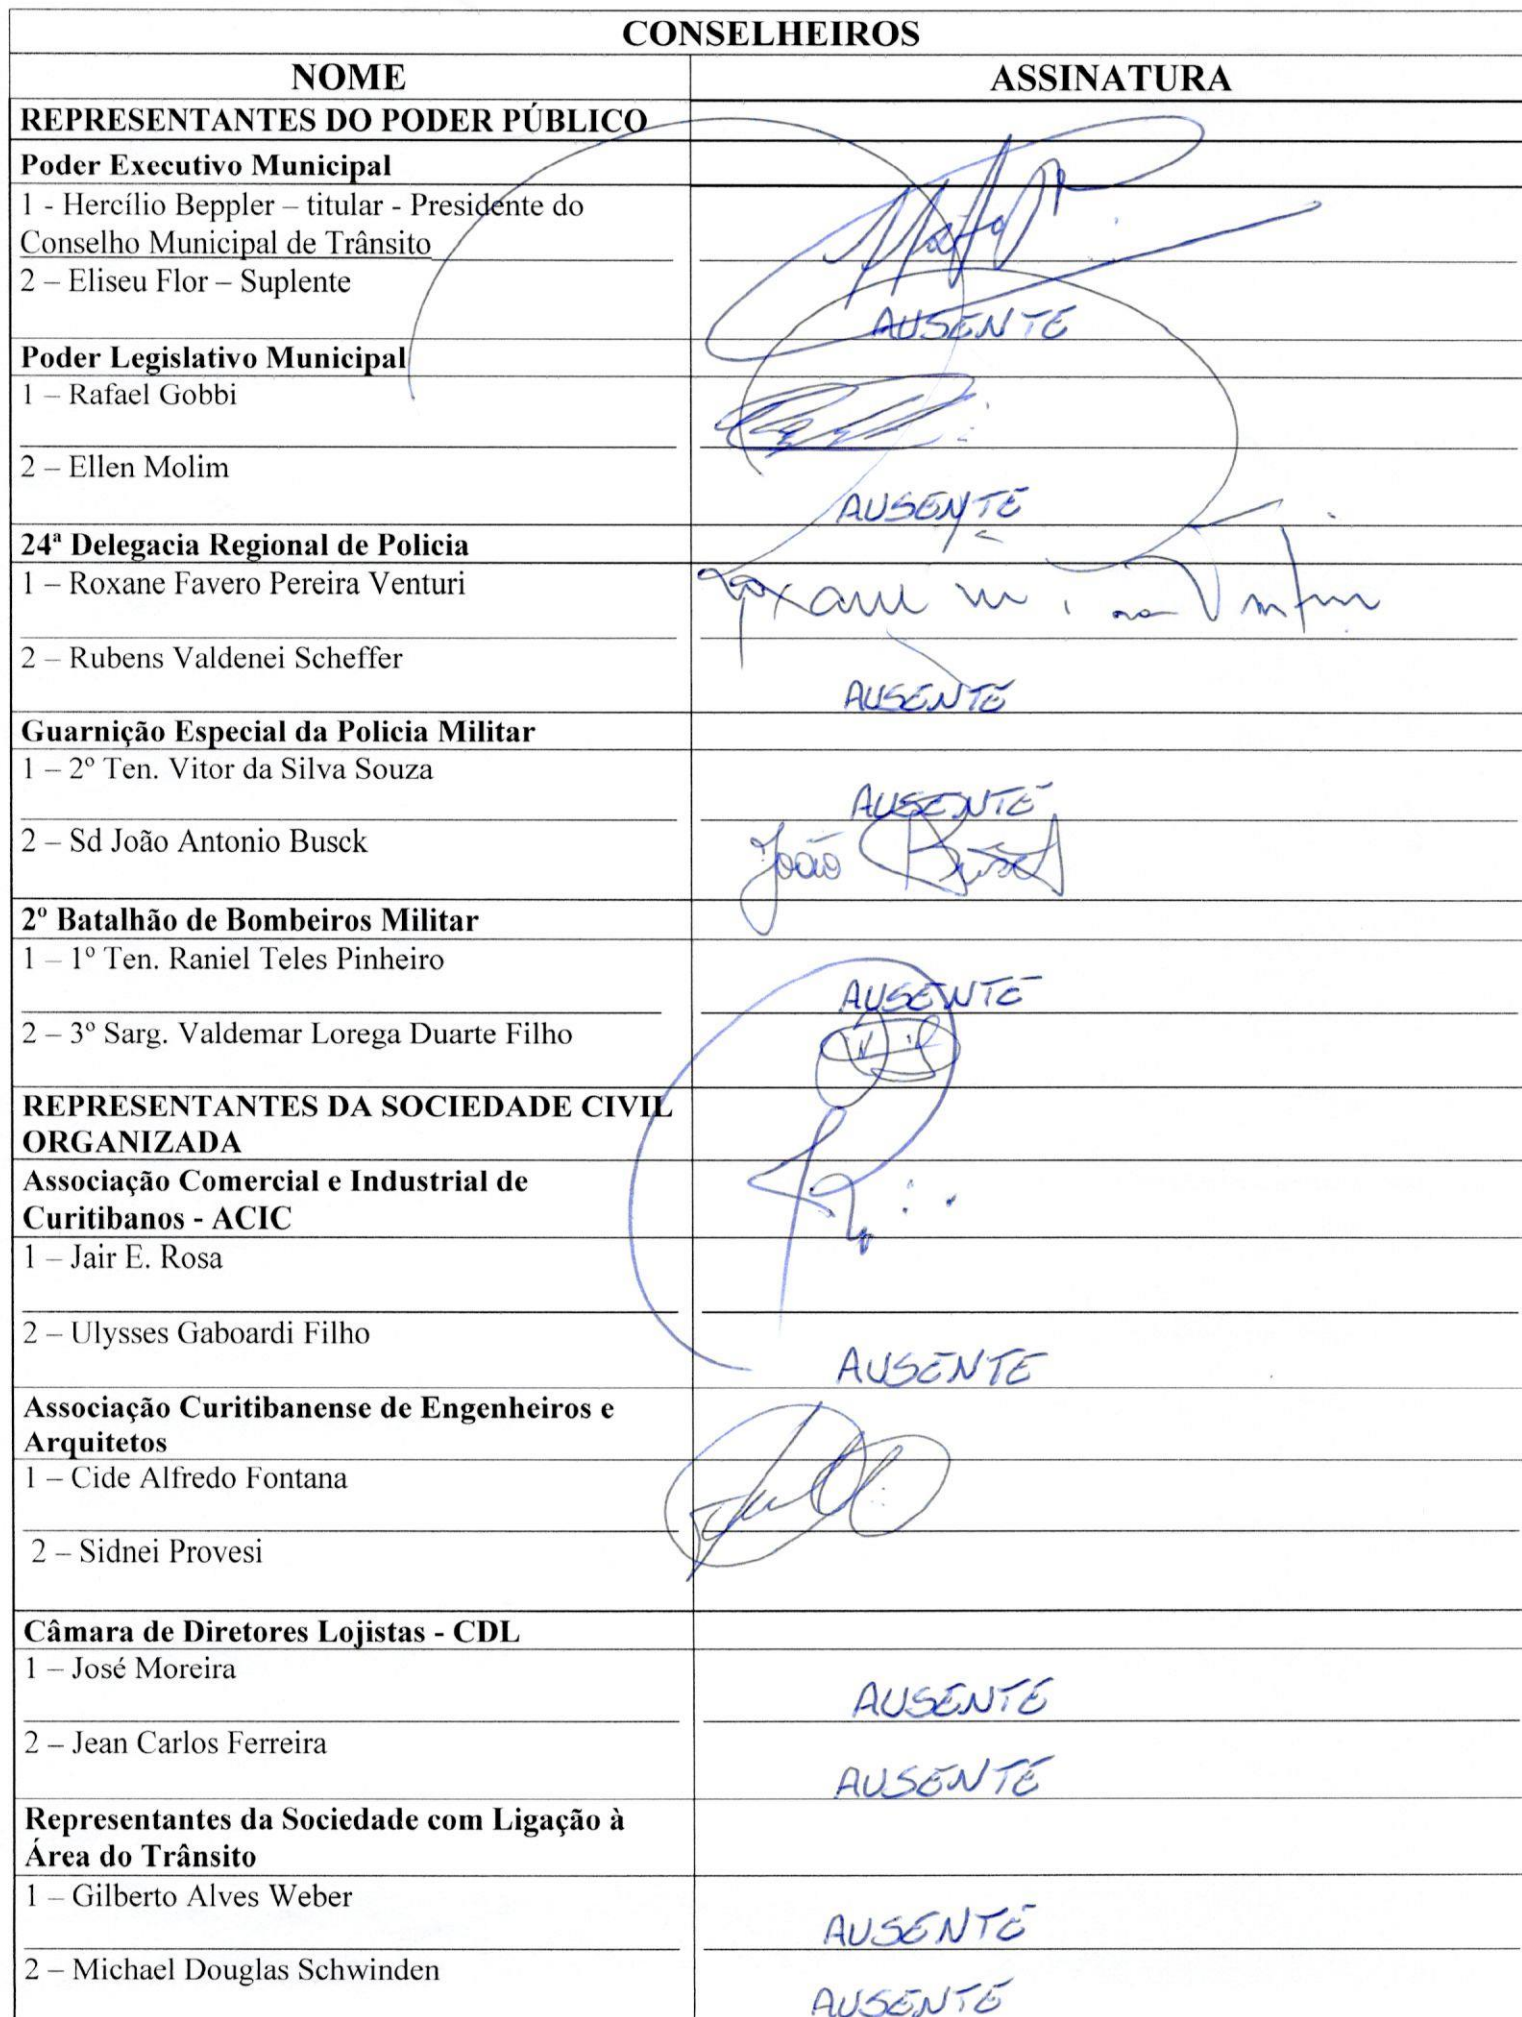 CONSELHEIROS
NOME ASSINATURA
REPRESENTANTES DO PODER PÚBLICO
Poder Executivo Municipal
1 - Hercílio Beppler – titular - Presidente do
Conselho Municipal de Trânsito
2 – Eliseu Flor – Suplente
AUSENTE
Poder Legislativo Municipal
1 – Rafael Gobbi
2 – Ellen Molim
AUSENTE
24ª Delegacia Regional de Policia
1 – Roxane Favero Pereira Venturi
2 – Rubens Valdenei Scheffer
AUSENTE
Guarnição Especial da Policia Militar
1 – 2º Ten. Vitor da Silva Souza
AUSENTE
2 – Sd João Antonio Busck
João
2º Batalhão de Bombeiros Militar
1 – 1º Ten. Raniel Teles Pinheiro
AUSENTE
2 – 3º Sarg. Valdemar Lorega Duarte Filho
REPRESENTANTES DA SOCIEDADE CIVIL
ORGANIZADA
Associação Comercial e Industrial de
Curitibanos - ACIC
1 – Jair E. Rosa
2 – Ulysses Gaboardi Filho
AUSENTE
Associação Curitibanense de Engenheiros e
Arquitetos
1 – Cide Alfredo Fontana
2 – Sidnei Provesi
Câmara de Diretores Lojistas - CDL
1 – José Moreira
AUSENTE
2 – Jean Carlos Ferreira
AUSENTE
Representantes da Sociedade com Ligação à
Área do Trânsito
1 – Gilberto Alves Weber
AUSENTE
2 – Michael Douglas Schwinden
AUSENTE